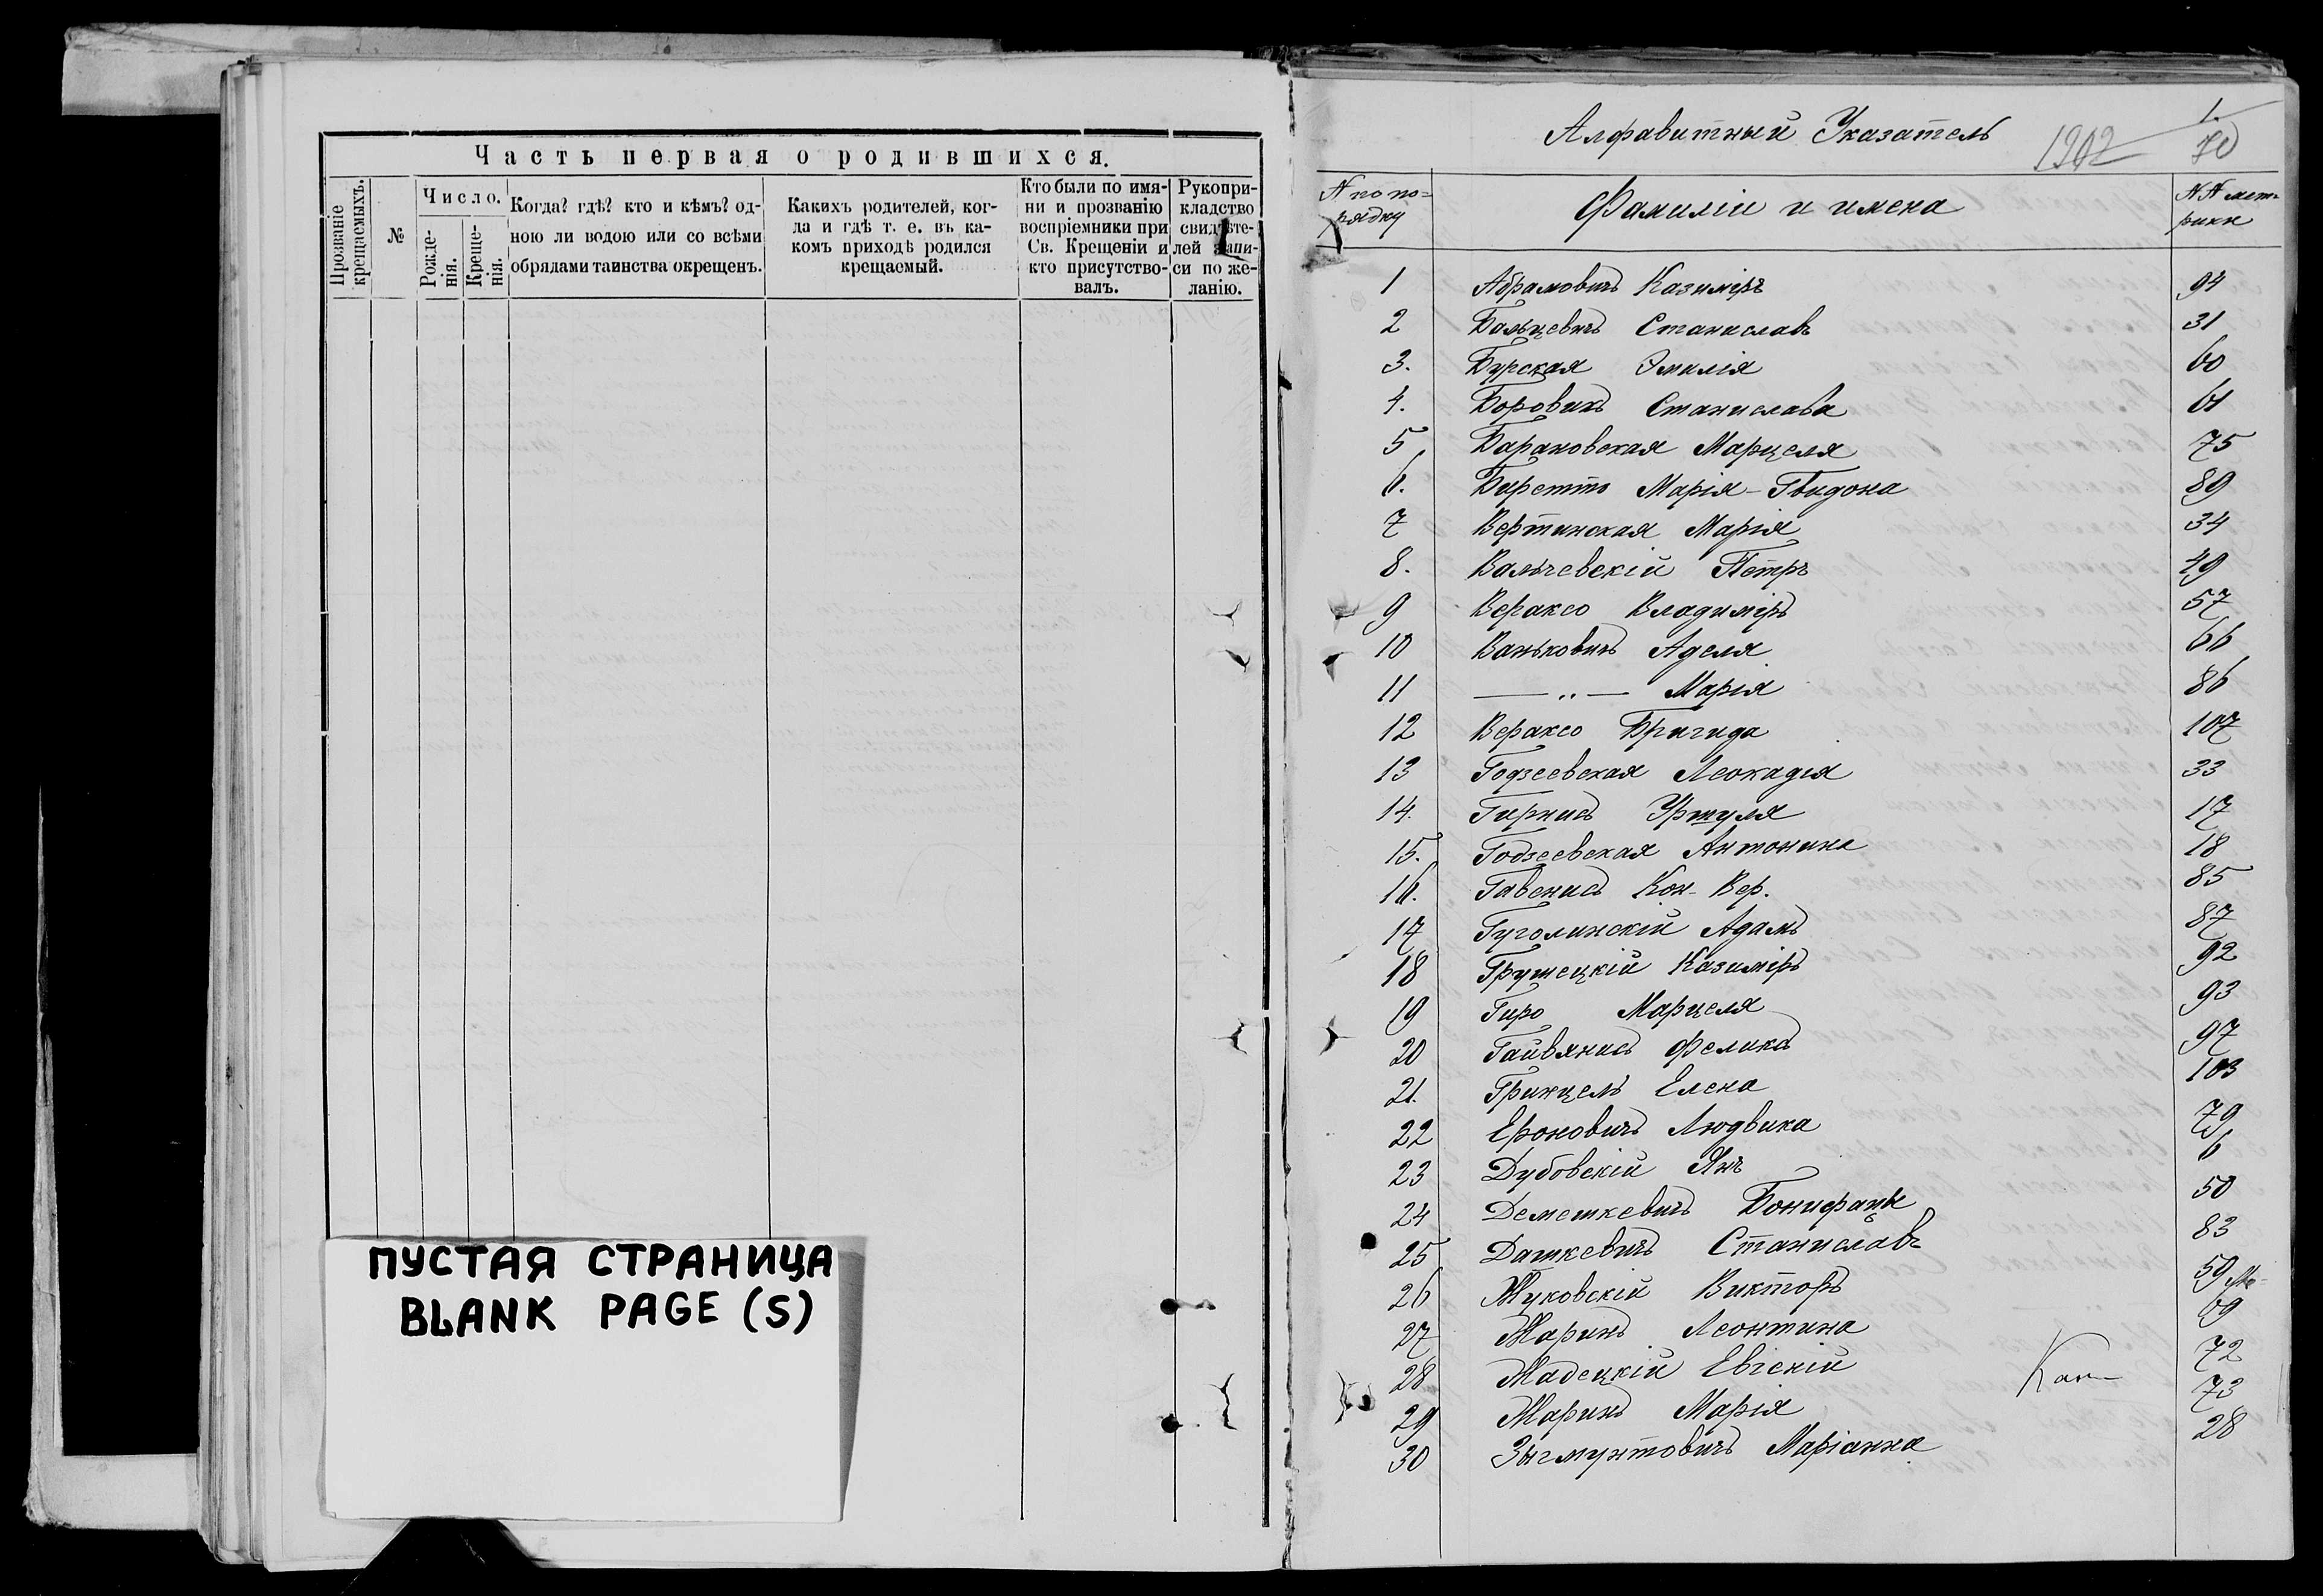 Часть первая о родившихся.
Прозваніе крещаемыхъ.
№
Число.
Рожде-
нія.
Креще-
нія.
Когда? гдѣ? кто и кѣмъ? од-
ною ли водою или со всѣми
обрядами таинства окрещенъ.
Какихъ родителей, ког-
да и гдѣ т. е. въ ка-
комъ приходѣ родился
крещаемый.
Кто были по имя-
ни и прозванію
воспріемники при
Св. Крещеніи и
кто присутство-
валъ.
Рукопри-
кладство
свидѣте-
лей запи-
си по же-
ланію.
ПУСТАЯ СТРАНИЦА
BLANK PAGE (S)
Алфавитный Указатель
1902
1.
70
N по по-
рядку
Фамиліи и имена
NN мет-
рики
1 Абрамовичъ Казиміръ 94
2 Бальцевичъ Станиславъ 31
3. Бурская Эмилія 60
4. Боровикъ Станислава 61
5 Барановская Марцеля 75
6. Биретто Марія-Гвидона 89
7 Вертинская Марія 34
8. Вальчевскій Петръ 49
9 Вераксо Владиміръ 57
10 Ваньковичъ Аделя 66
11 — „ — Марія 86
12 Вераксо Бригида 107
13 Годзеевская Леокадія 33
14. Гирнисъ Уршуля 17
15. Годзеевская Антонина 18
16. Гавенисъ Кон-Вер. 85
17 Гуголинскій Адамъ 87
18 Гружецкій Казиміръ 92
19 Гиро Марцеля 93
20 Гайвянисъ Феликсъ 97
21. Гринцель Елена 103
22 Ероновичъ Людвика 79
23 Дубовскій Янъ 6
24 Демешкевичъ Бонифацы 50
25 Дашкевичъ Станиславъ 83
26 Жуковскій Викторъ 59
27 Жаринъ Леонтина 69
28 Жадецкій Евгеній 72
29 Жаринъ Марія 73
30 Зыгмунтовичъ Маріанна 28